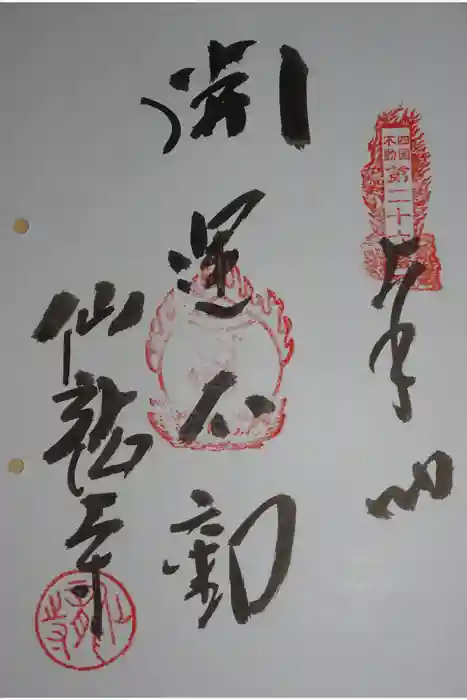 四国
不動
第二十六
奉拝
開運不動
仙龍寺